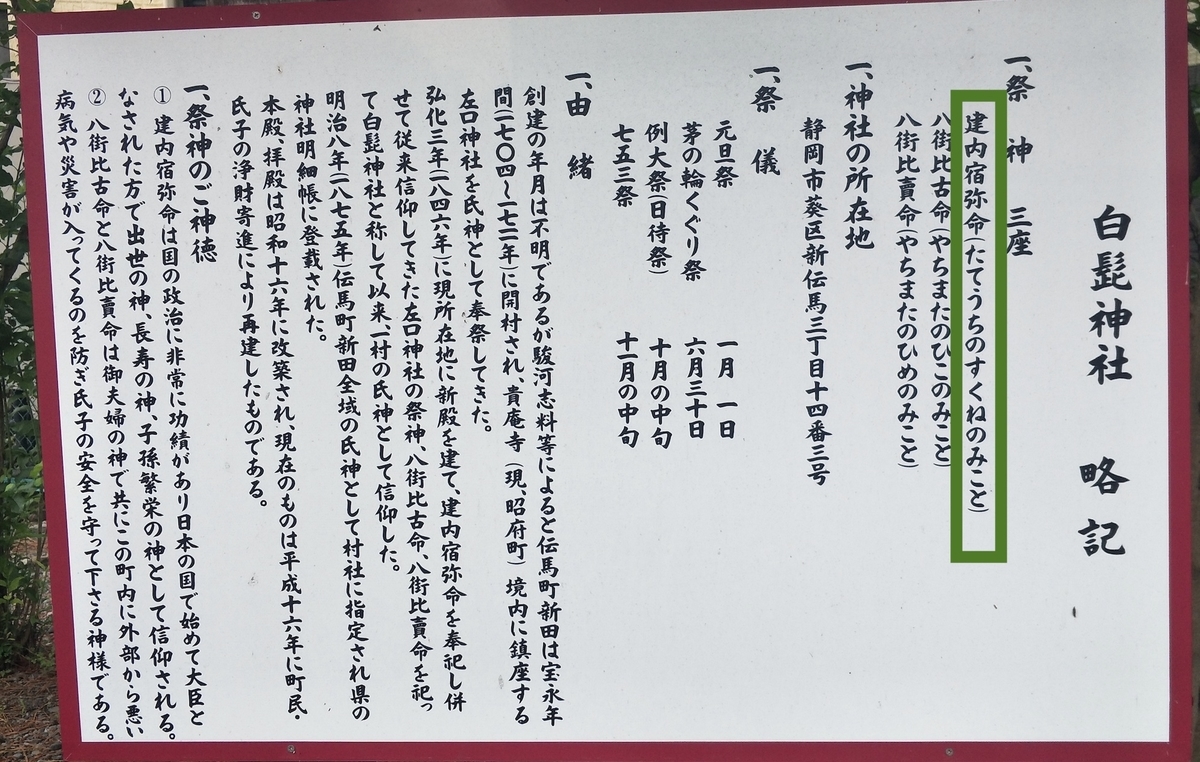 白髭神社 略記
一、祭神 三座
建内宿弥命(たてうちのすくねのみこと)
八街比古命(やちまたのひこのみこと)
八街比賣命(やちまたのひめのみこと)
一、神社の所在地
静岡市葵区新伝馬三丁目十四番三号
一、祭儀
元旦祭 一月一日
茅の輪くぐり祭 六月三十日
例大祭(日待祭) 十月の中旬
七五三祭 十一月の中旬
一、由緒
創建の年月は不明であるが駿河志料等によると伝馬町新田は宝永年
間(一七〇四~一七一一年)に開村され、貴庵寺(現、昭府町)境内に鎮座する
左口神社を氏神として奉祭してきた。
弘化三年(一八四六年)に現所在地に新殿を建て、建内宿弥命を奉祀し併
せて従来信仰してきた左口神社の祭神、八街比古命、八街比賣命を祀っ
て白髭神社と称して以来、一村の氏神として信仰した。
明治八年(一八七五年)伝馬町新田全域の氏神として村社に指定され県の
神社明細帳に登載された。
本殿、拝殿は昭和十六年に改築され、現在のものは平成十六年に町民・
氏子の浄財寄進により再建したものである。
一、祭神のご神徳
① 建内宿弥命は国の政治に非常に功績があり日本の国で始めて大臣と
なされた方で出世の神、長寿の神、子孫繁栄の神として信仰される。
② 八街比古命と八街比賣命は御夫婦の神で共にこの町内に外部から悪い
病気や災害が入ってくるのを防ぎ氏子の安全を守って下さる神様である。